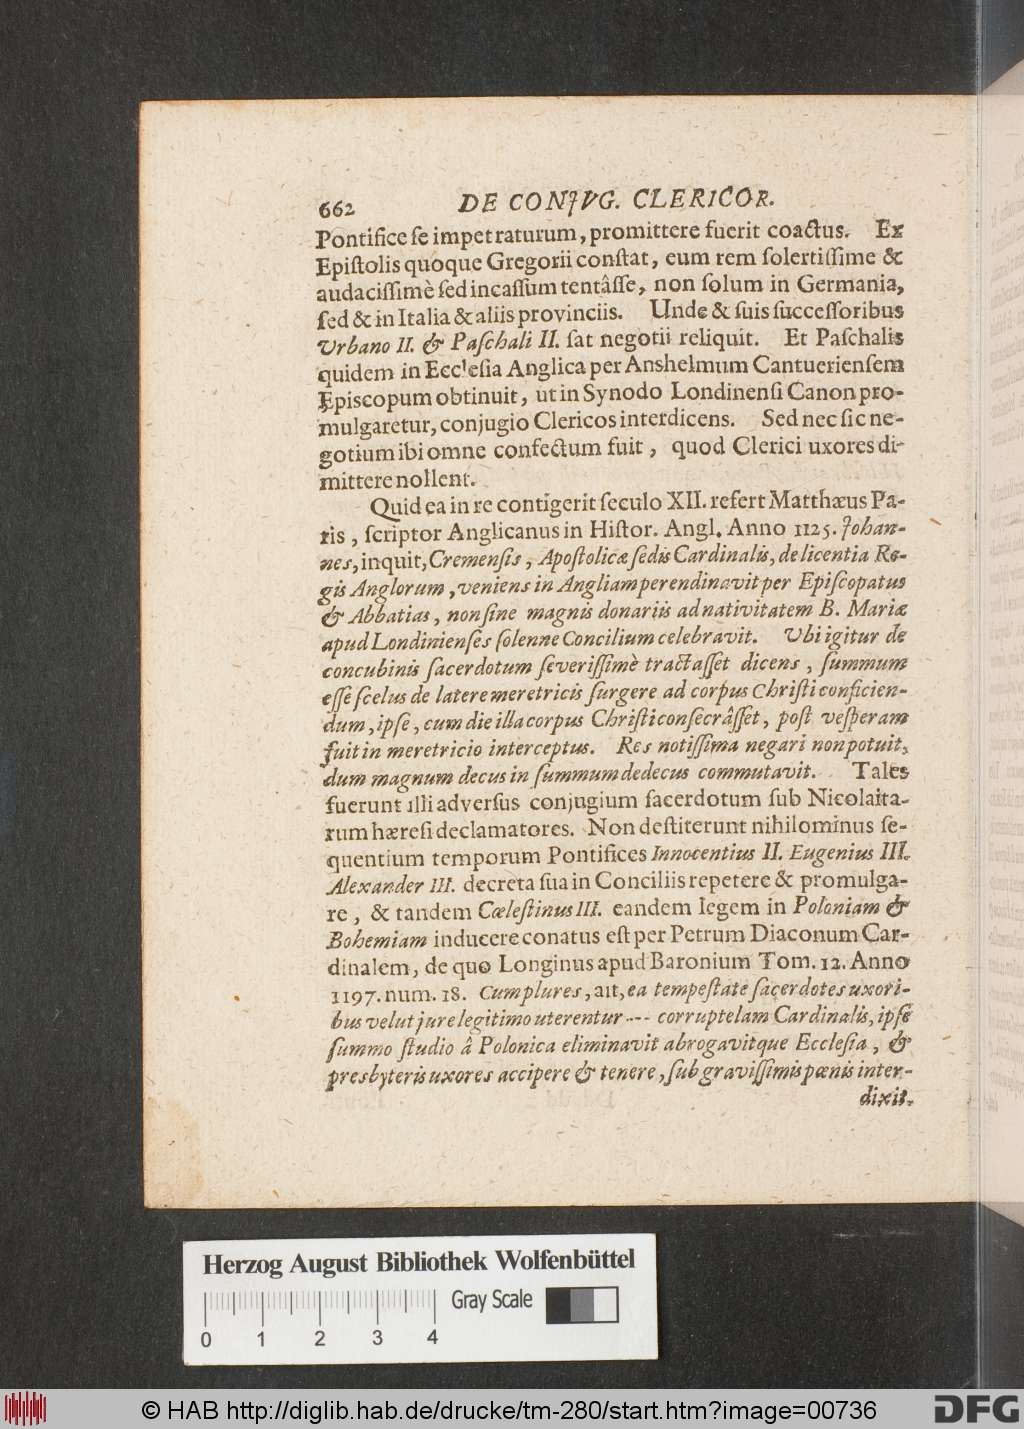 662 DE CONJVG. CLERICOR.
Pontifice se impetraturum, promittere fuerit coactus. Ex
Epistolis quoque Gregorii constat, eum rem solertissime &
audacissimè sed incassum tentâsse, non solum in Germania,
sed & in Italia & aliis provinciis. Unde & suis successoribus
Vrbano II. & Paschali II. sat negotii reliquit. Et Paschalis
quidem in Ecclesia Anglica per Anshelmum Cantueriensem
Episcopum obtinuit, ut in Synodo Londinensi Canon pro-
mulgaretur, conjugio Clericos interdicens. Sed nec sic ne-
gotium ibi omne confectum fuit, quod Clerici uxores di-
mittere nollent.
Quid ea in re contigerit seculo XII. refert Matthæus Pa-
ris, scriptor Anglicanus in Histor. Angl. Anno 1125. Johan-
nes, inquit, Cremensis, Apostolicæ sedis Cardinalis, de licentia Re-
gis Anglorum, veniens in Angliam perendinavit per Episcopatus
& Abbatias, non sine magnis donariis ad nativitatem B. Mariæ
apud Londinienses solenne Concilium celebravit. Ubi igitur de
concubinis sacerdotum severissimè tractasset dicens, summum
esse scelus de latere meretricis surgere ad corpus Christi conficien-
dum, ipse, cum die illa corpus Christi consecrâsset, post vesperam
fuit in meretricio interceptus. Res notissima negari non potuit,
dum magnum decus in summum dedecus commutavit. Tales
fuerunt illi adversus conjugium sacerdotum sub Nicolaita-
rum hæresi declamatores. Non destiterunt nihilominus se-
quentium temporum Pontifices Innocentius II. Eugenius III.
Alexander III. decreta sua in Conciliis repetere & promulga-
re, & tandem Cœlestinus III. eandem legem in Poloniam &
Bohemiam inducere conatus est per Petrum Diaconum Car-
dinalem, de quo Longinus apud Baronium Tom. 12. Anno
1197. num. 18. Cum plures, ait, ea tempestate sacerdotes uxori-
bus velut jure legitimo uterentur --- corruptelam Cardinalis, ipse
summo studio â Polonica eliminavit abrogavitque Ecclesia, &
presbyteris uxores accipere & tenere, sub gravissimis pœnis inter-
dixit.
Herzog August Bibliothek Wolfenbüttel
Gray Scale
0 1 2 3 4
© HAB http://diglib.hab.de/drucke/tm-280/start.htm?image=00736
DFG